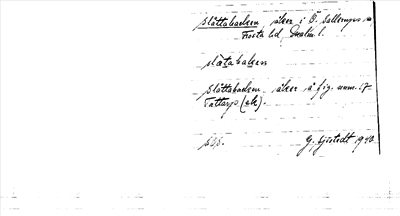 Slättabacken, åker i Ö. Sallerups sn
Frosta hd, Malm. l.
slætabakən
Slättabacken, åker å fig. num. 7
Tattarp (ek).
G. Sjöstedt 1940